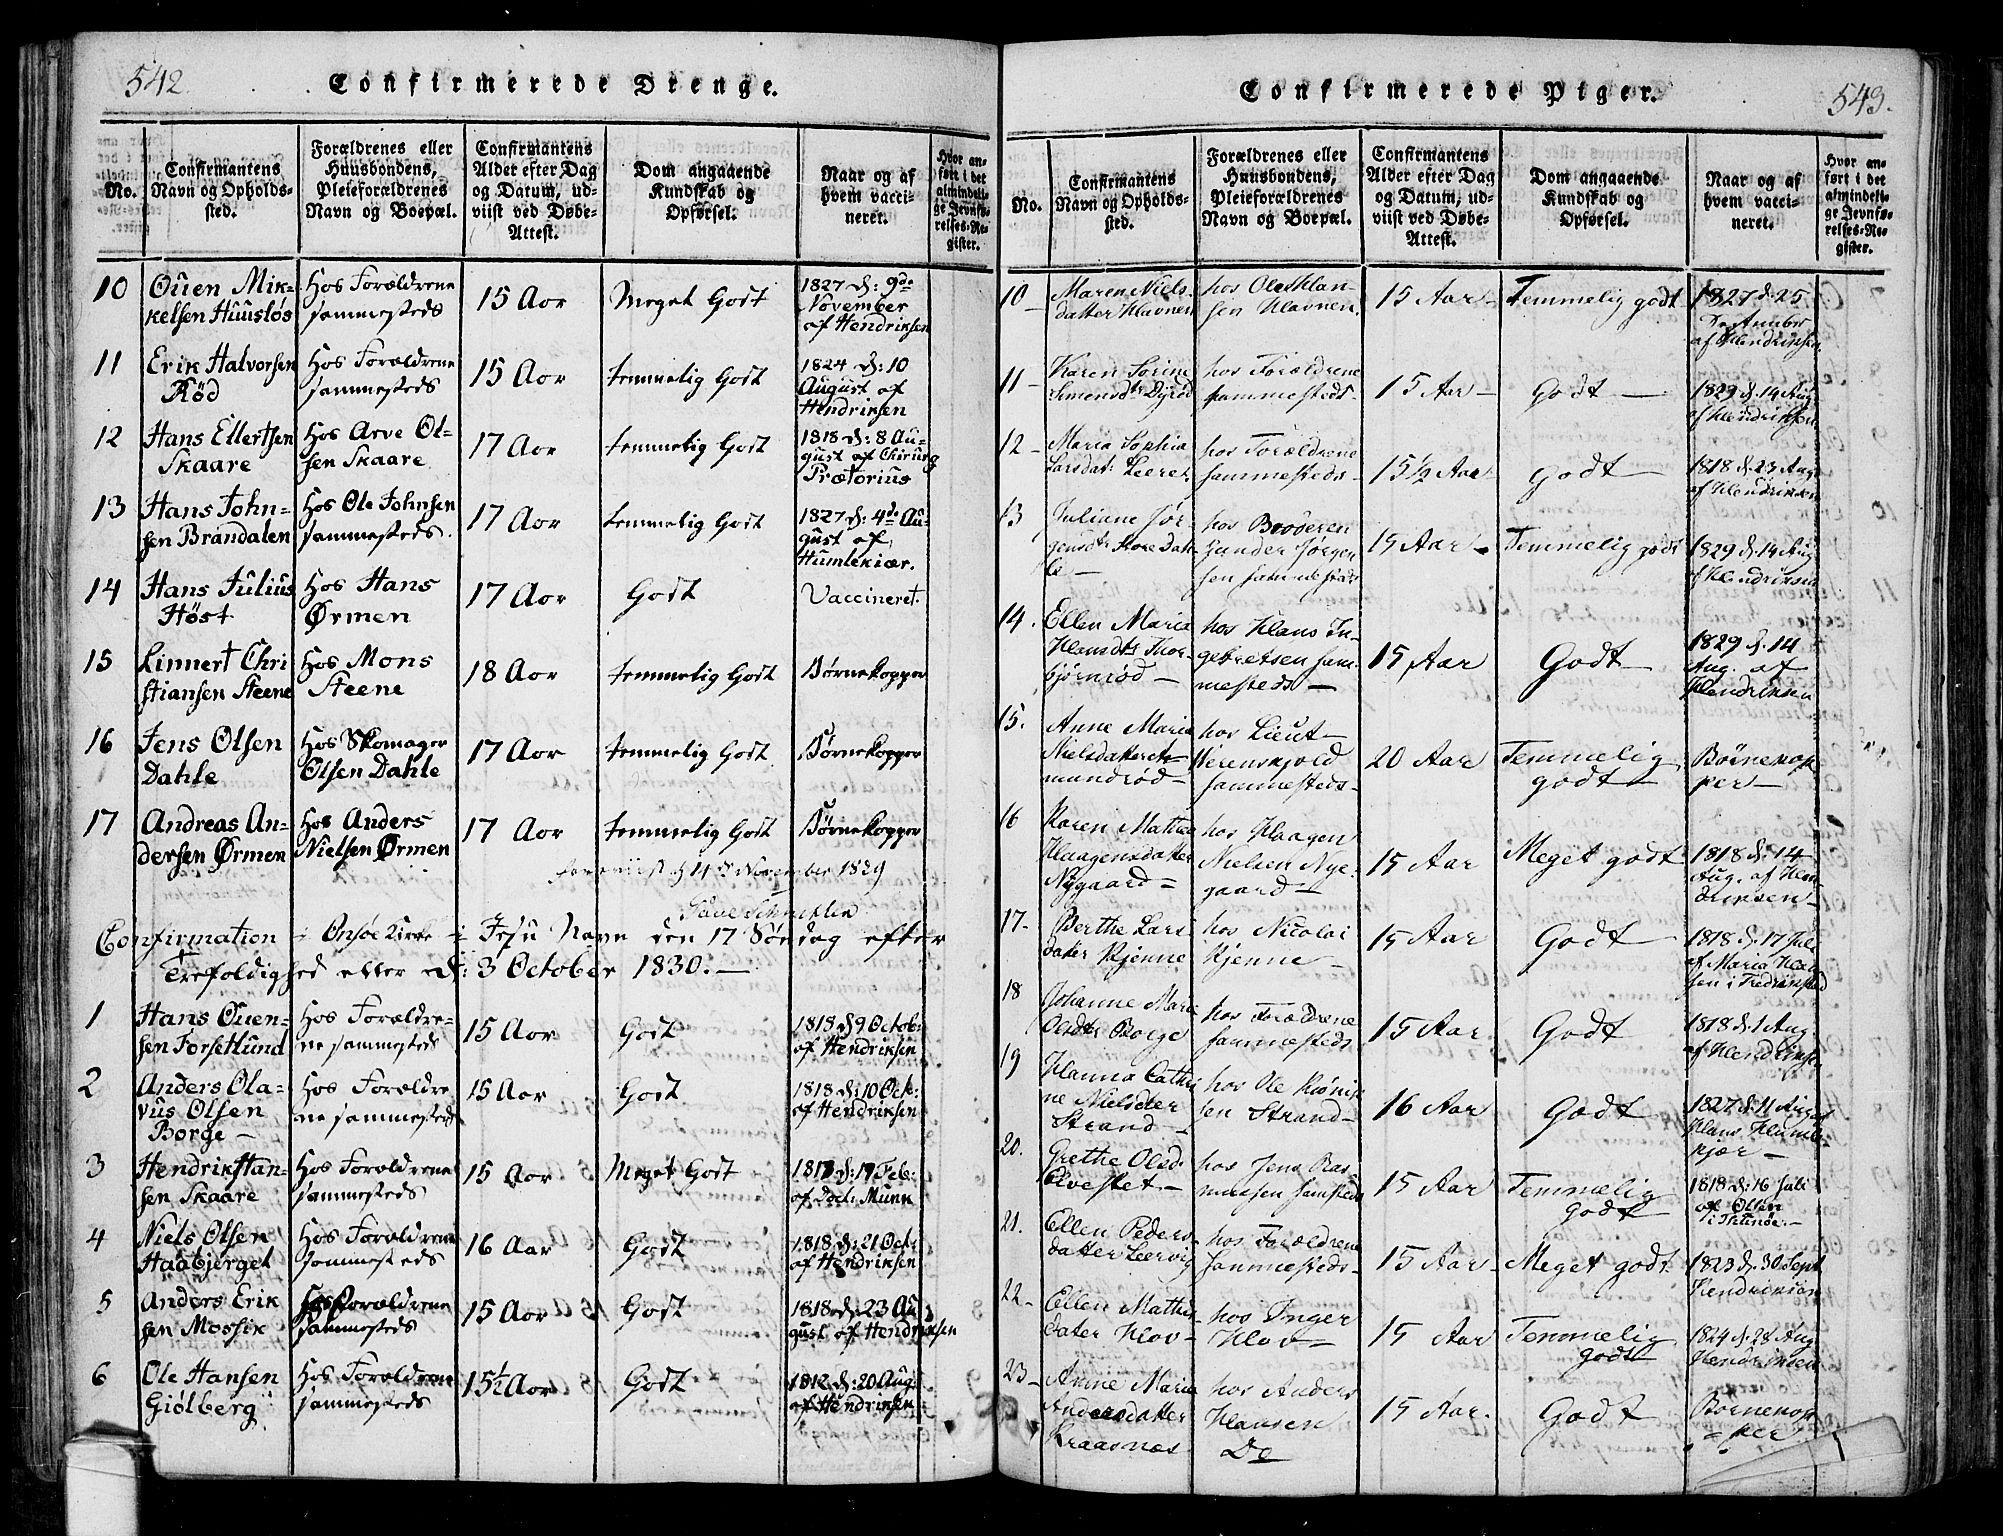 542.
Confirmerede Drenge.
No.
Confirmantens
Navn og Opholds-
sted.
Forældrenes eller
Huusbondens,
Pleieforældrenes
Navn og Boepæl.
Confirmantens
Alder efter Dag
og Datum, ud-
viist ved Døbe-
Attest.
Dom angaaende
Kundskab og
Opførsel.
Naar og af
hvem vacci-
neret.
Hvor an-
ført i det
almindeli-
ge Jevnfø-
relses-Re-
gister.
10
Ouen Mik-
kelsen Huusløs
Hos Forældrene
sammesteds
15 Aor
Meget Godt
1827 d: 9de
November
af Hendriksen
11
Erik Halvorsen
Röd
Hos Forældrene
sammesteds
15 Aor
temmelig Godt
1824 d: 10
August af
Hendriksen
12
Hans Ellertsen
Skaare
Hos Arve Ol-
sen Skaare
17 Aor
temmelig Godt
1818 d: 8 Au-
gust af Chirurg
Prætorius
13
Hans John-
sen Brandalen
Hos Ole Johnsen
sammesteds.
17 Aor
temmelig Godt
1827 d: 4de Au-
gust af
Humlekiær.
14
Hans Julius
Höst
Hos Hans
Ørmen
17 Aor
Godt
Vaccineret.
15
Linnert Chri
stiansen Steene
Hos Mons
Steene
18 Aor
temmelig Godt
Børnekopper
16
Jens Olsen
Dahle
Hos Skomager
Olsen Dahle
17 Aor
temmelig Godt
Børnekopper
17
Andreas An-
dersen Ørmen
Hos Anders
Nielsen Ørmen
17 Aor
temmelig Godt
Børnekopper
November 1829
Confirmation i Onsøe Kirke i Jesu Navn den 17 Söndag efter
Trefoldighed eller d: 3 October 1830. —
1
Hans Ouen-
sen Forsetlund
Hos Forældre-
ne sammesteds
15 Aor
Godt
1818 d 9 Octob:
af Hendriksen
2
Anders Ola-
vus Olsen
Borge —
Hos Forældre
ne sammesteds
15 Aor
Godt
1818 d: 10 Oct:
af Hendriksen
3
Hendrik Han-
sen Skaare
Hos Forældrene
sammesteds
15 Aor
Meget Godt
af Doct: Munn
4
Niels Olsen
Haabjerget
Hos Forældrene
sammesteds
16 Aar
Godt
1818 d: 21 Oct:
af Hendriksen
5
Anders Erik
sen Mossik
Hos Forældrene
sammesteds
15 Aor
Godt
1818 d: 23 Au
gust af Hendriksen
6
Ole Hansen
Giölberg
Hos Forældrene
sammesteds
15½ Aor
Godt
1812 d: 20 Aug:
af Hendriksen
Confirmerede Piger.
543.
No.
Confirmantens
Navn og Opholds-
sted.
Forældrenes eller
Huusbondens,
Pleieforældrenes
Navn og Boepæl.
Confirmantens
Alder efter Dag
og Datum, ud-
viist ved Døbe-
Attest.
Dom angaaende
Kundskab og
Opførsel.
Naar og af
hvem vacci-
neret.
Hvor an-
ført i det
almindeli-
ge Jevnfø-
relses-Re-
gister.
10
Maren Niels
datter Havnen
hos Ole Han
sen Havnen
15 Aar —
Temmelig godt
1827 d. 25
af Hendriksen
11 —
Karen Sorine
Simensdtr Dyrød
hos Forældrene
sammesteds
15 Aar —
Godt —
1829 d. 14 Aug
af Hendriksen
12 —
Maria Sophia
Larsdat: Leeret
hos Forældrene
sammesteds
15½ Aar
Godt —
1818 d. 23 Aug
af Hendriksen
13
Juliane Jør-
gensdtr Store Dah-
le —
hos Broderen
Gunder Jørgen
sen sammesteds
15 Aar —
Temmelig godt
1829 d. 14 Aug
af Hendriksen
14.
Ellen Maria
Hansdtr Thor-
bjørnrød —
hos Hans In-
gebretsen sam-
mesteds —
15 Aar
Godt —
1829 d. 14
Aug. af
Hendriksen
15.
Anne Maria
mundrød —
hos Lieut —
Werenskjold
sammesteds
20 Aar
Temmelig
godt —
Børnekop
per —
16
Karen Mathea
Haagensdatter
Nygaard —
hos Haagen
Nielsen Nye-
gaard —
15 Aar
Meget godt
1818 d. 14
Aug. af Hen-
driksen —
17.
Berthe Lars
datter Kjenne
hos Nicolai
Kjenne —
15 Aar
Godt —
1818 d. 17 Jul
af Maria Han
sen i Fredrikstad
18
Johanne Marie
Olsdtr Borge
hos Forældrene
sammesteds
15 Aar
Godt
1818 d. 1 Aug.
af Hendriksen
19
Hanna Cathri
ne Nielsdter
Strand —
hos Ole
sen Strand —
16 Aar
Godt
1827 d. 11 August
Hans Humle-
kjær —
20.
Grethe Olsd:
Elvestet —
hos Jens Ras
mussen samsteds
15 Aar
Temmelig
godt
1818 d. 16 Juli
af Olsen
21.
Ellen Peders
datter Leervig
hos Forældrene
sammesteds
15 Aar
Meget godt
1823 d. 30 Sept
Hendriksen
22 —
Ellen Mathis
dater Hov —
hos Inger
Hov —
15 Aar
Temmelig
godt
1824 d. 24 Aug
Hendriksen
23 —
Anne Maria
Andersdatter
Kraasnæs
hos Anders
Hansen
Do
15 Aar.
Godt
Børnekop
= per